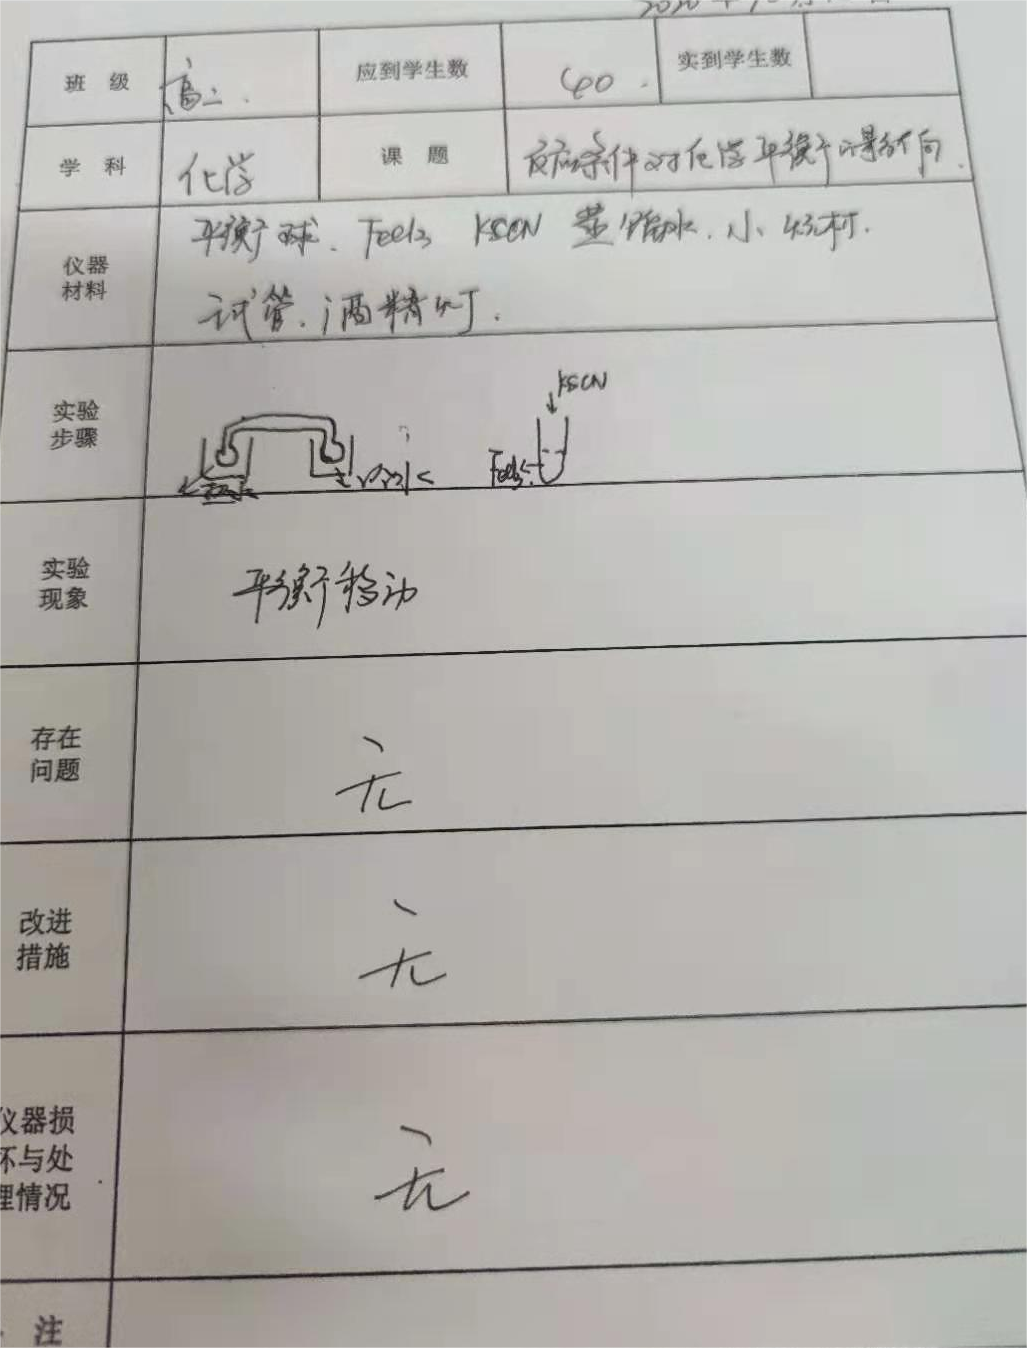 班级 高二. 应到学生数 40. 实到学生数
学科 化学 课题 反应条件对化学平衡的影响.
仪器
材料
平衡球. FeCl3 KSCN 蒸馏水. 小烧杯.
试管. 酒精灯.
实验
步骤
KSCN
FeCl3
实验
现象
平衡移动
存在
问题
无
改进
措施
无
仪器损
坏与处
理情况
无
注